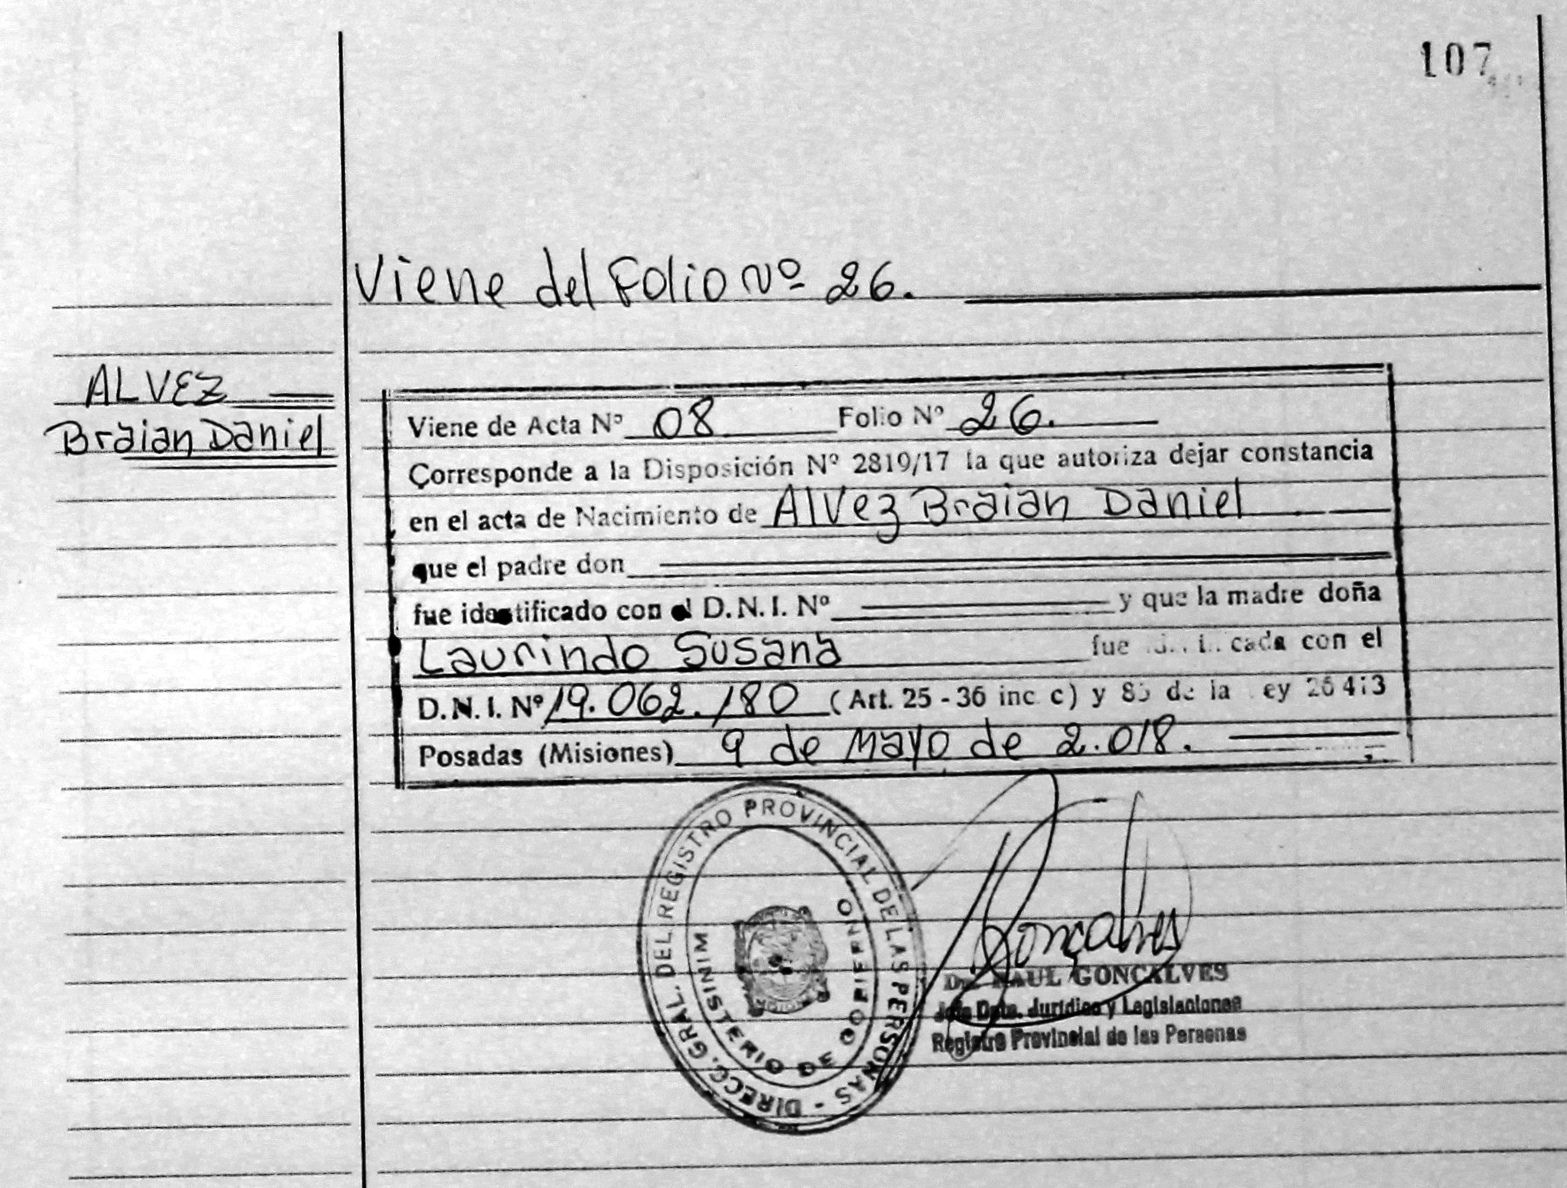 107
Viene del Folio Nº 26.
ALVEZ
Braian Daniel
Viene de Acta Nº 08 Folio Nº 26.
Corresponde a la Disposición Nº 2819/17 la que autoriza dejar constancia
en el acta de Nacimiento de Alvez Braian Daniel
que el padre don
fue identificado con el D.N.I. Nº y que la madre doña
Laurindo Susana fue cada con el
D.N.I. Nº 19.062.180 (Art. 25 - 36 inc c) y 85 de la ey 26413
Posadas (Misiones) 9 de Mayo de 2.018.
DIRECC. GRAL. DEL REGISTRO PROVINCIAL DE LAS PERSONAS -
MINISTERIO DE GOBIERNO
Gonçalves
Dr. RAUL GONÇALVES
Jefe Dpto. Jurídico y Legislaciones
Registro Provincial de las Personas